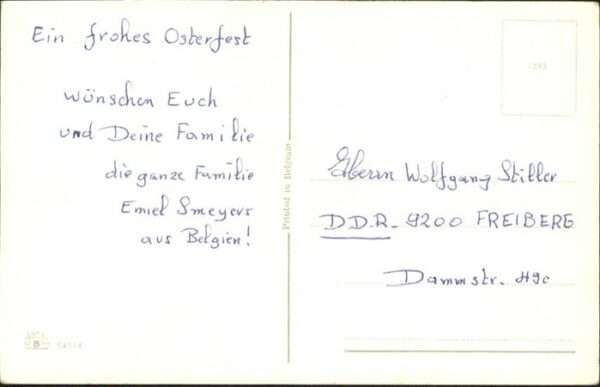 Ein frohes Osterfest
wünschen Euch
und Deine Familie
die ganze Familie
Emiel Smeyers
aus Belgien!
Printed in Belgium
Herrn Wolfgang Stiller
D.D.R. 9200 FREIBERG
Dammstr. 49c